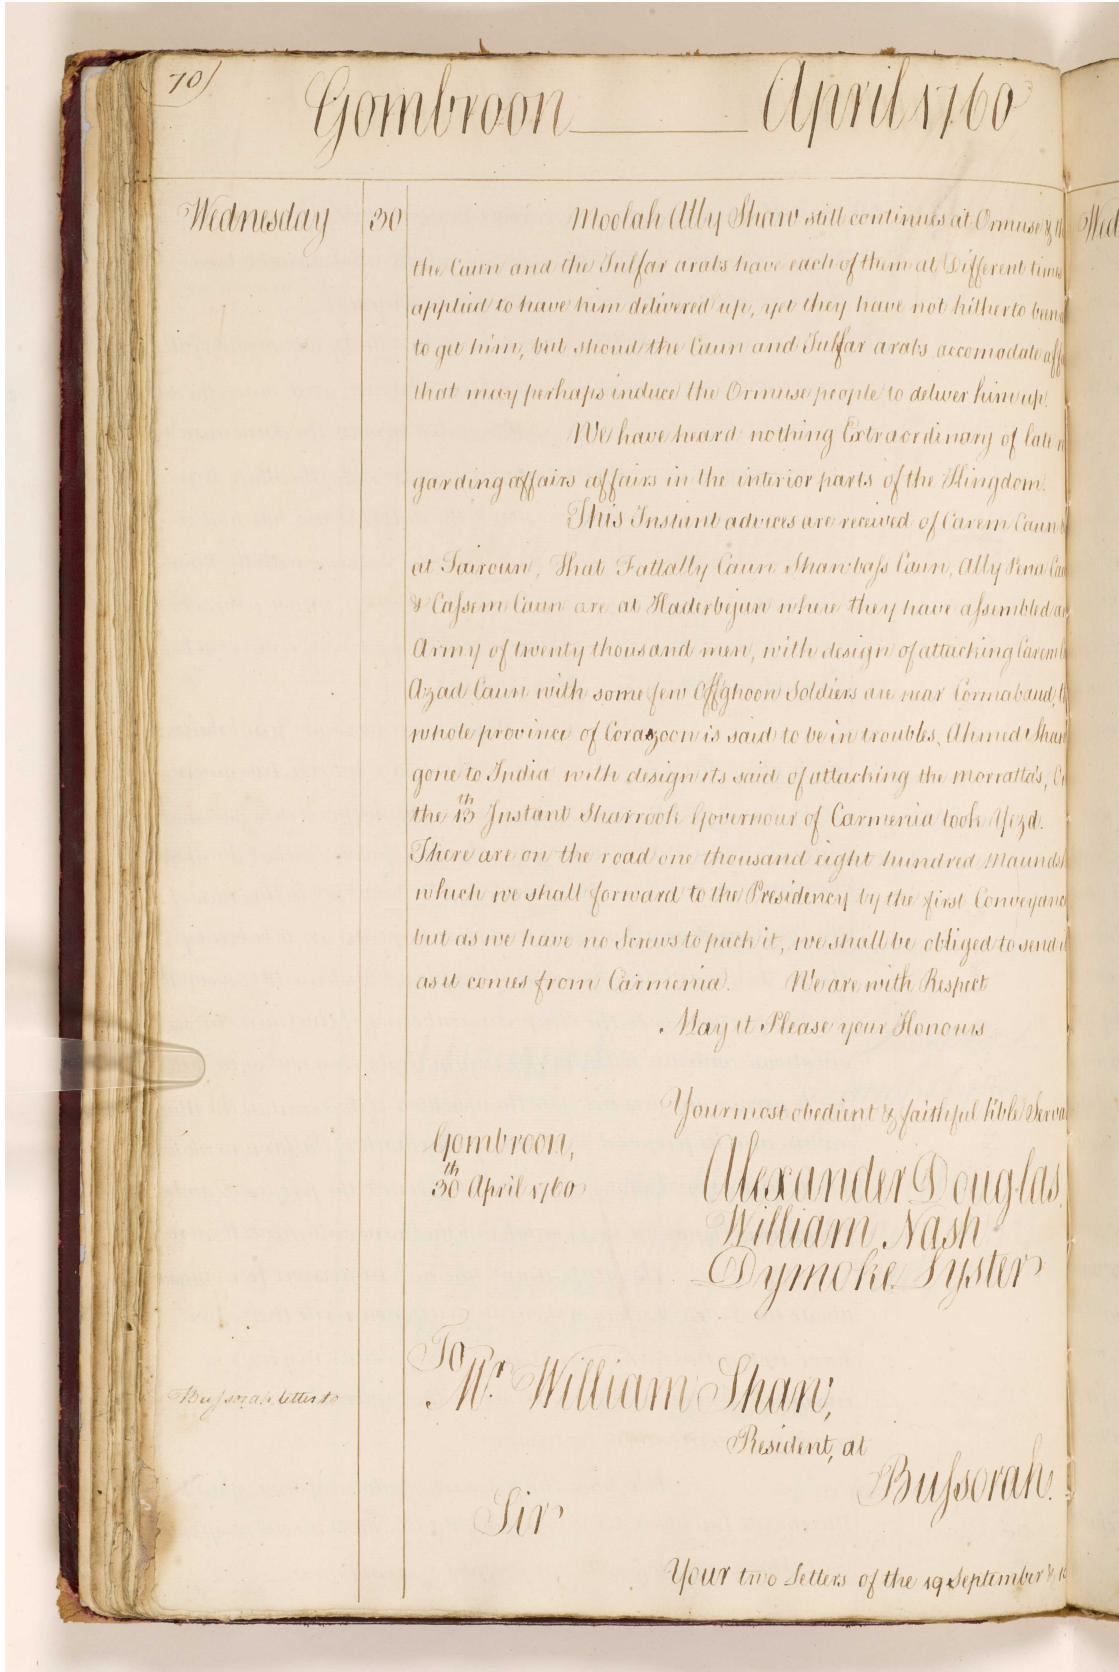 70)
Gombroon April 1760
Wednesday 30 Moolah Ally Shaw still continues at Ormuse &
the Caun and the Julfar arabs have each of them at Different times
applied to have him delivered up, yet they have not hitherto been
to get him, but shoud the Caun and Julfar arabs accomodate
that may perhaps induce the Ormuse people to deliver him up.
We have heard nothing Extraordinary of late
garding affairs affairs in the interior parts of the Kingdom.
This Instant advices are received of Carem Caun
at Tairoun, That Fattally Caun Shawbass Caun, Ally
& Cassem Caun are at Haderbejun where they have assembled
Army of twenty thousand men, with design of attacking Carem
Azad Caun with some few Offghoon Soldiers are near
whole province of Corazoon is said to be in troubles, Ahmed Shaw
gone to India with design its said of attacking the Morratta's,
the 13th Instant Sharrook Governour of Carmenia took Yezd.
There are on the road one thousand eight hundred Maunds
which we shall forward to the Presidency by the first Conveyance
but as we have no Screws to pack it, we shall be obliged to send
as it comes from Carmenia. We are with Respect
May it Please your Honours
Your most obedient & faithful
Gombroon,
30th April 1760
Alexander Douglas
William Nash
Dymoke Lyster
Bussorah letter to
To
Mr. William Shaw,
Resident, at
Bussorah.
Sir
Your two Letters of the 19 September &